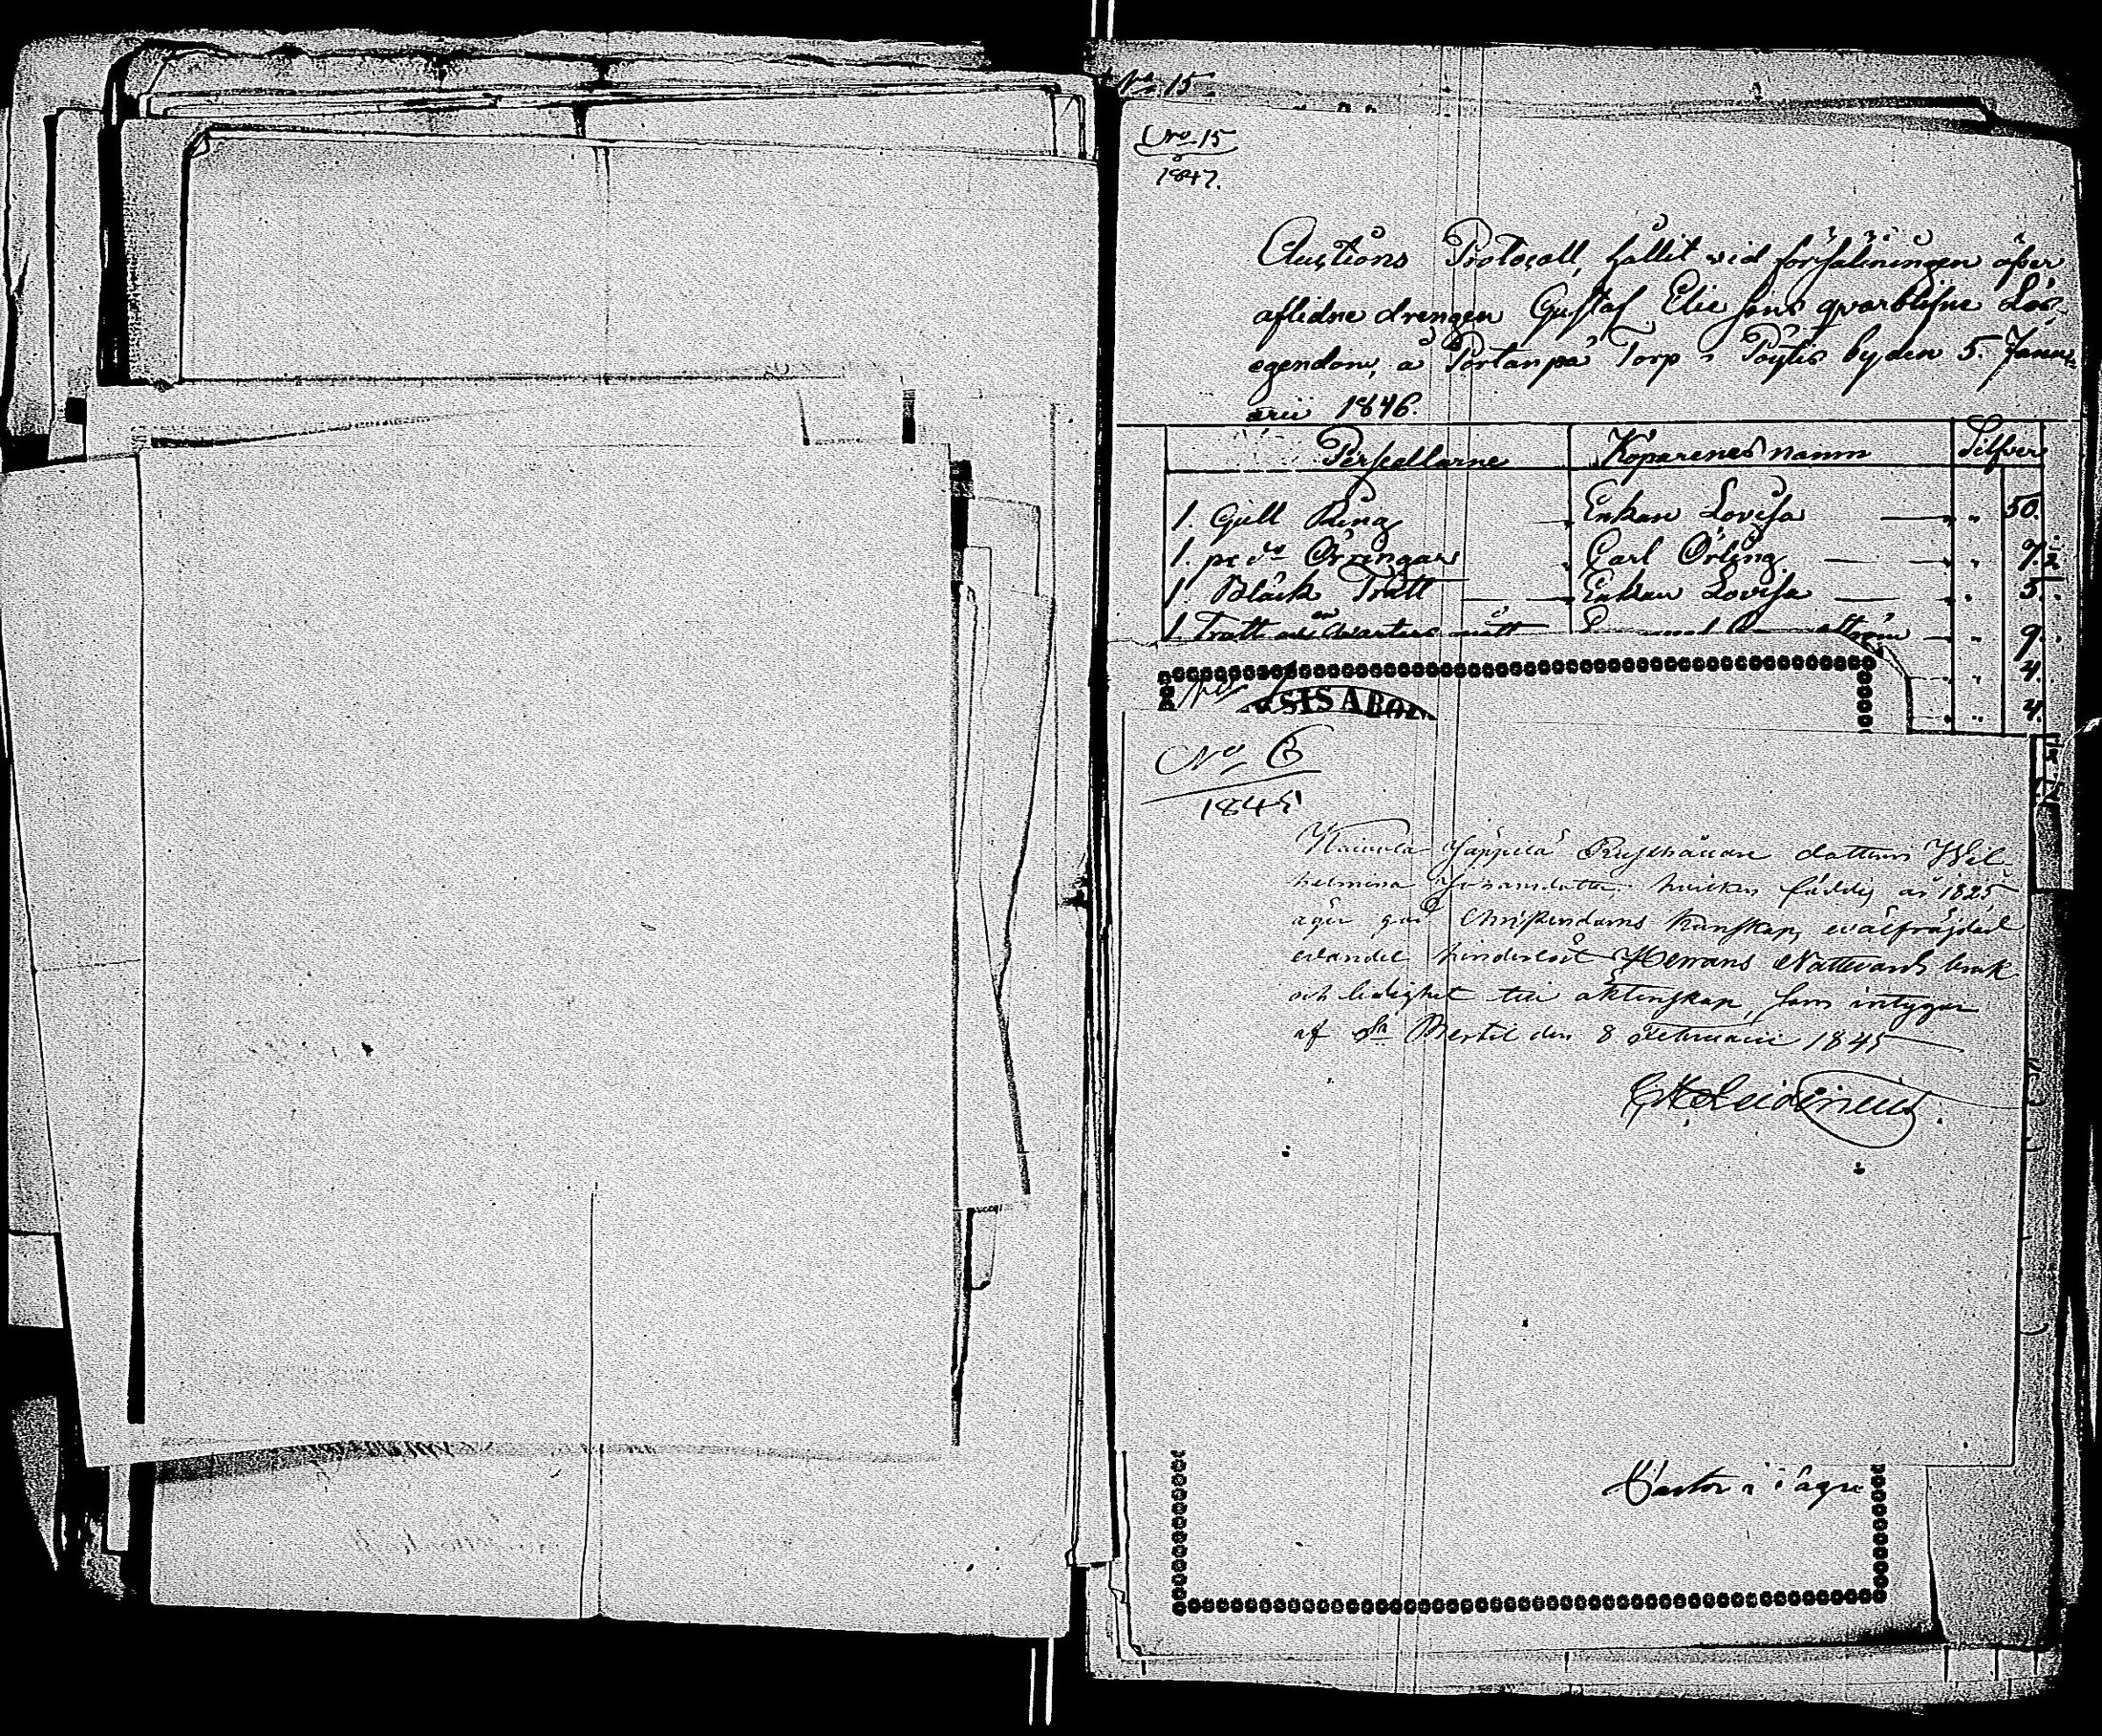 No 15
No 15
1847.
Auctions Protocoll, hållit vid försäkningen öfver
aflidne drengen Gustaf Elie sons qvarblifne Lös-
egendom, å Portanpä Torp i Pöytis by den 5. Janu-
arii 1846.
Persedlarne Köparenes namn Silfver
1. Gull Ring Enkan Lovisa " 50.
1. pr do Örringar Carl Örling " 7.
1. Bläck Tratt Enkan Lovisa " 5.
1 Tratt " 9.
" 4.
" 4.
SIS ABO
No 6
1845
Rusthållare dottern Wil-
helmina Johansdotter hvilken född är 1825
äger god Christendoms kunskap, wälfräjdad
wandel hinderlöst Herrans Nattvards bruk
och ledighet till äktenskap, som intygar
af St Bertil den 8 Februarii 1845
Pastor i